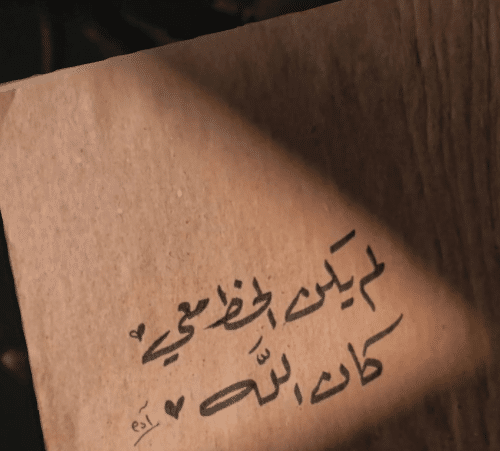 لم يكن الحظ معي
كان الله
آدم